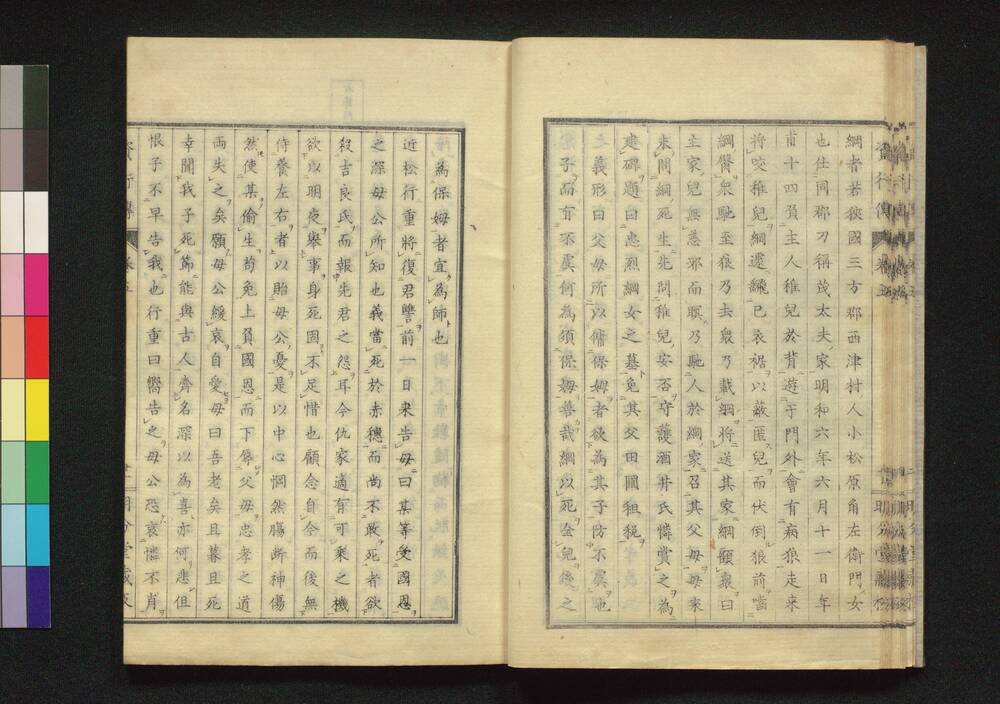 綱者若狹國三方郡西津村人小松原角左衛門女
也仕同郡刀稱茂太夫家明和六年六月十一日年
甫十四負主人稚兒於背遊于門外會有病狼走來
將咬稚兒綱遽餘已衣裾以蔽匿兒而伏倒狼前嚙
綱臀衆馳至狼乃去衆乃載綱將送其家綱顧衆曰
主家兒無恙邪而瞑乃馳人於綱家召其父母母來
未問綱死生先問稚兒安否守護酒井氏憐賞之為
建碑題曰忠烈綱女之墓免其父田圃租税
義形曰父母所以傭保姆者欲為其子防不虞也
子而有不虞何為須保姆善哉綱以死全兒後之
為保姆者宜為師也
近松行重將復君讐前一日来告母曰某等受國恩
之深母公所知也義當死於赤穗而尚不敢死者欲
殺吉良氏而報先君之怨耳今仇家適有可乘之機
欲以明夜舉事身死固不足惜也顧念自今而後無
侍養左右者以貽母公憂是以中心惘然腸斷神傷
然使某偷生苟免上負國恩而下辱父母忠孝之道
両失之矣願母公緩哀自愛母曰吾老矣且暮且死
幸聞我子死節能與古人齊名深以為喜亦何悲但
恨子不早告我也行重曰嚮告之母公恐哀憐不肖